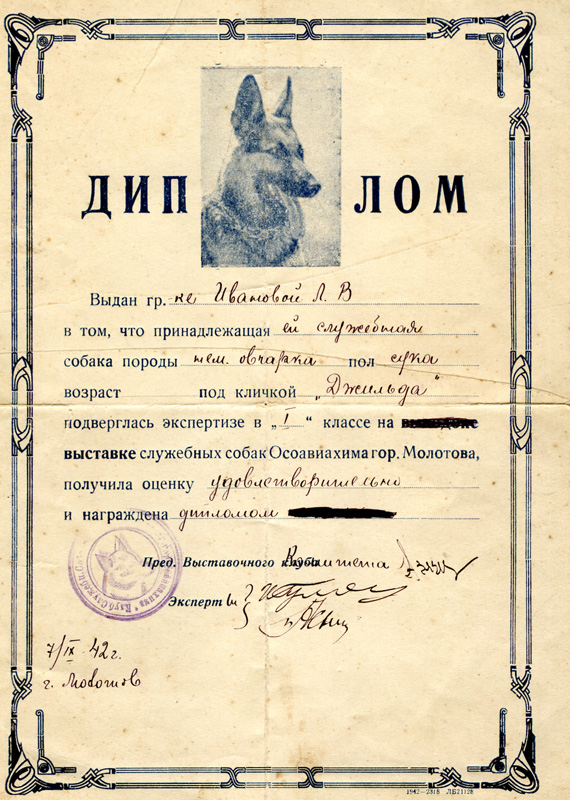 ДИПЛОМ
Выдан гр. не Ивановой Л. В
в том, что принадлежащая ей служебная
собака породы нем. овчарка пол сука
возраст под кличкой „Джильда"
подверглась экспертизе в „I" классе на
выставке служебных собак Осоавиахима гор. Молотова,
получила оценку удовлетворительно
и награждена дипломом
Пред. Выставочного Комитета
Эксперты
7/IX 42 г.
г. Молотов
1942—2818 ЛБ21128